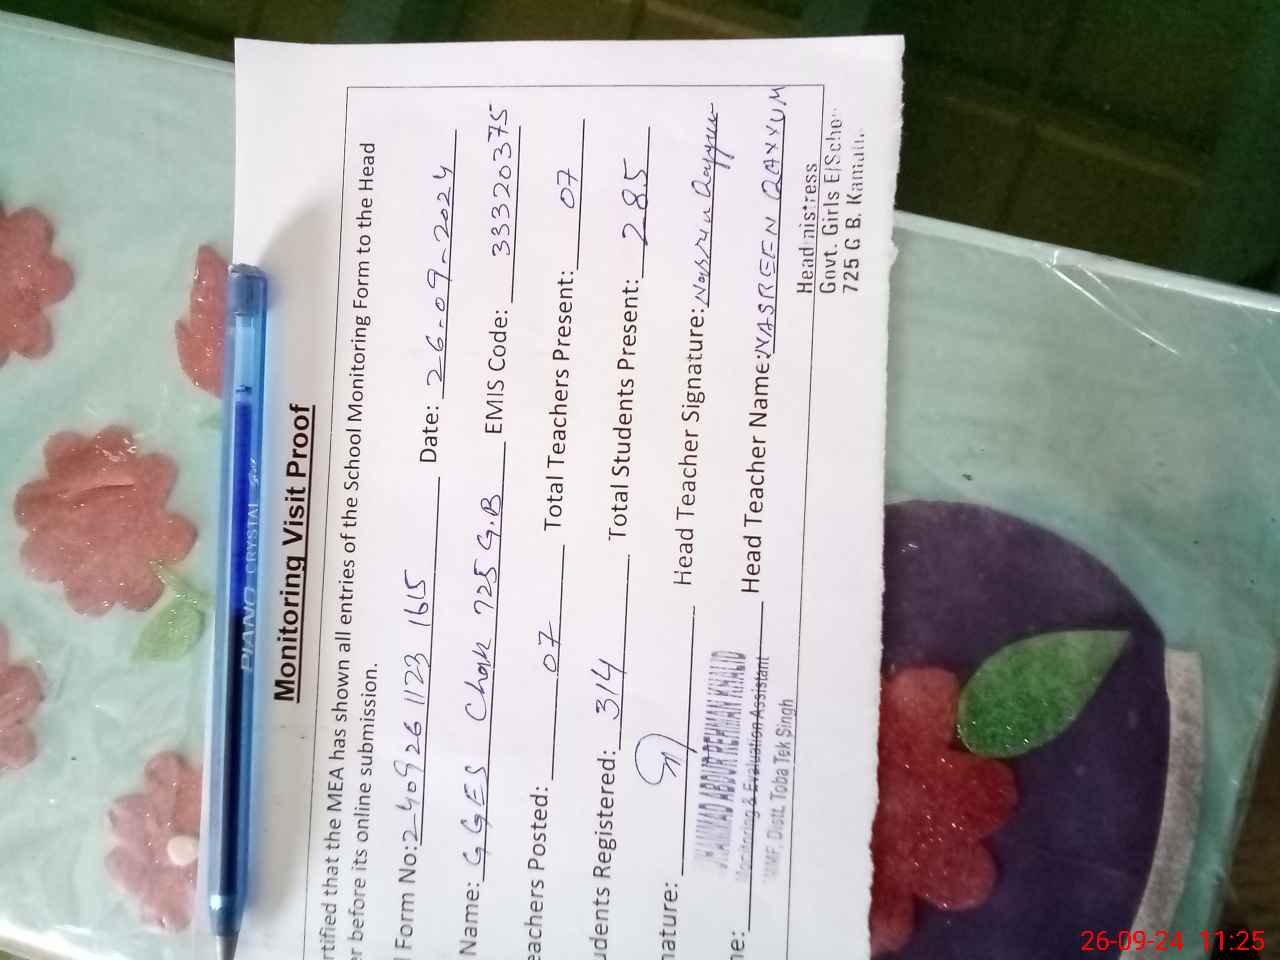 Monitoring Visit Proof
rtified that the MEA has shown all entries of the School Monitoring Form to the Head
er before its online submission.
l Form No: 240926 1123 1615 Date: 26-09-2024
Name: GGES Chak 725 G.B EMIS Code: 33320375
eachers Posted: 07 Total Teachers Present: 07
udents Registered: 314 Total Students Present: 285
nature: Head Teacher Signature: Nasreen Qayyum
me: Head Teacher Name: NASREEN QAYYUM
ABDUR REHMAN KHALID
Monitoring & Evaluation Assistant
Distt. Toba Tek Singh
Headmistress
Govt. Girls E/Schoo
725 G B. Kamali
PIANO CRYSTAL
26-09-24 11:25